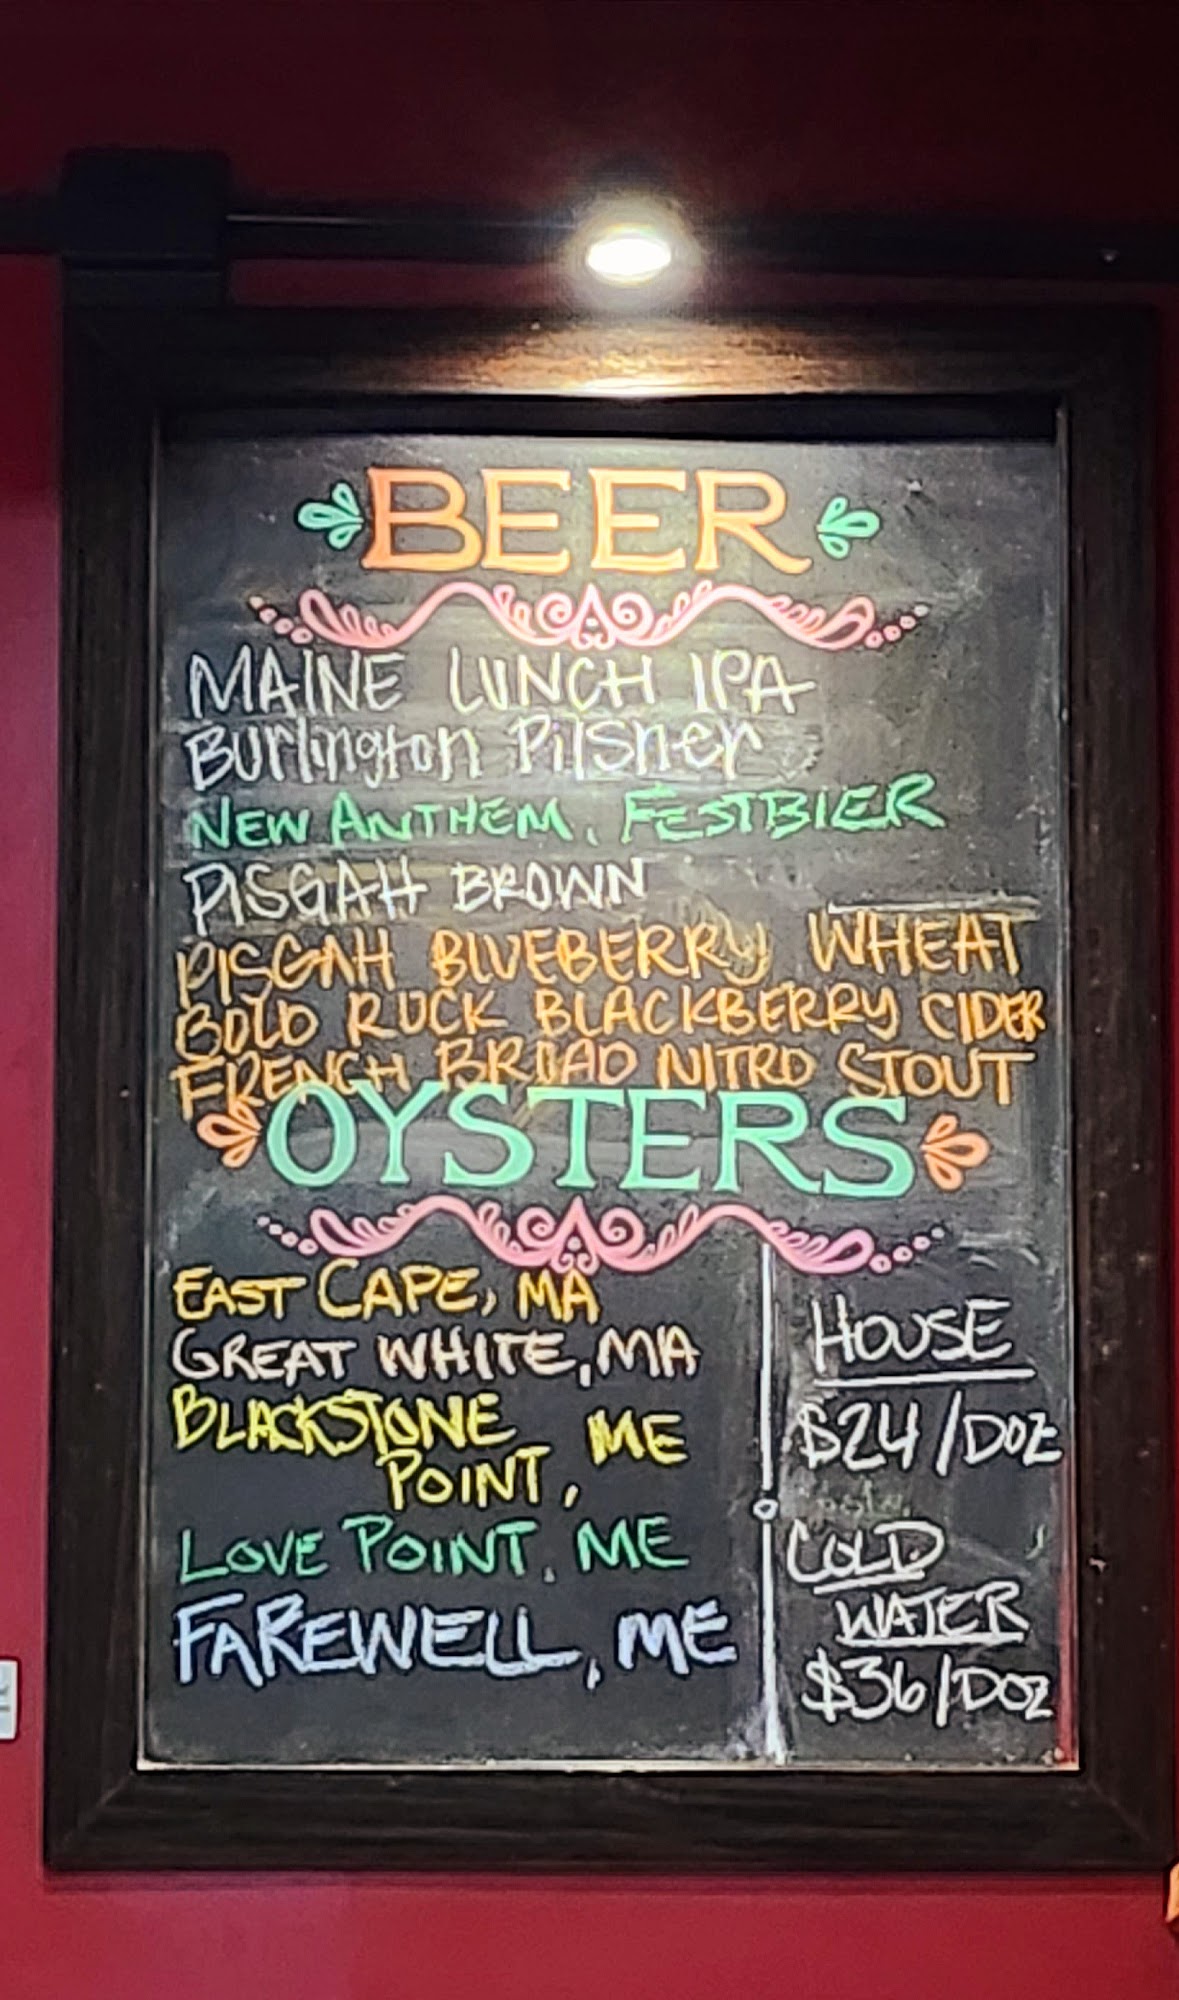 BEER
MAINE LUNCH IPA
Burlington Pilsner
NEW ANTHEM, FESTBIER
PISGAH BROWN
PISGAH BLUEBERRY WHEAT
BOLD ROCK BLACKBERRY CIDER
FRENCH BROAD NITRO STOUT
OYSTERS
EAST CAPE, MA
GREAT WHITE, MA
BLACKSTONE ME
POINT,
LOVE POINT, ME
FAREWELL, ME
HOUSE
$24/DOZ
COLD
WATER
$36/DOZ